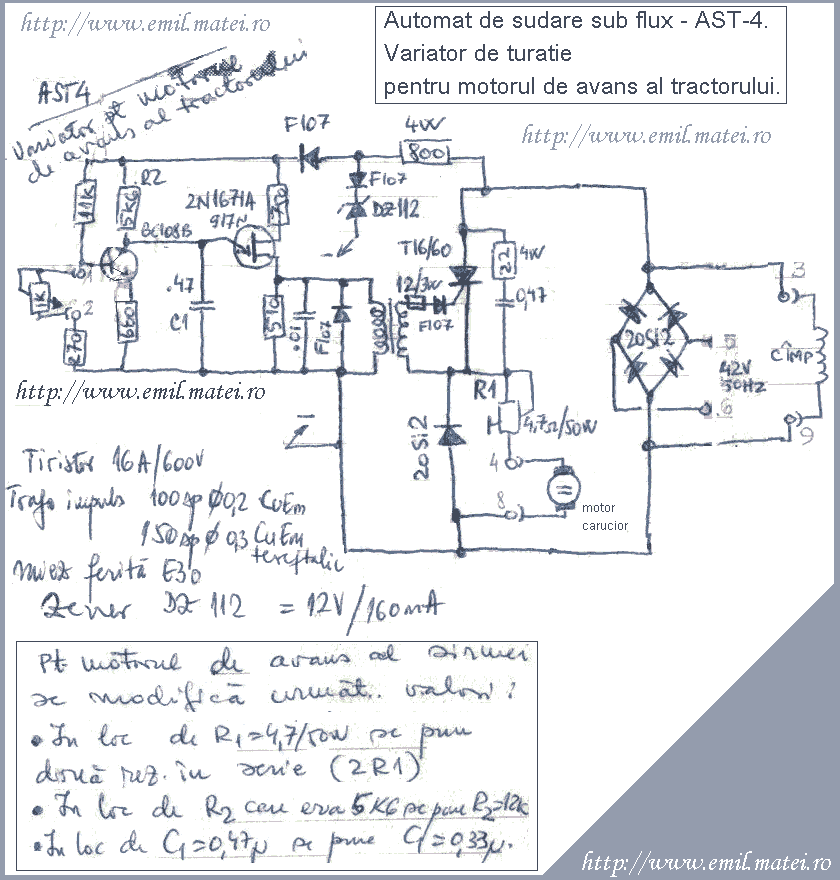 http://www.emil.matei.ro
Automat de sudare sub flux - AST-4.
Variator de turatie
pentru motorul de avans al tractorului.
AST4
Variator pt motorul
de avans al tractorului
http://www.emil.matei.ro
F107
4W
800
11K
5K6
R2
2N1671A
917N
F107
DZ112
BC108B
T16/60
22
4W
1K
2
.47
C1
680
270
510
.01
F107
12/3W
F107
0,47
3
20Si2
5
42V
50Hz
6
CÎMP
9
http://www.emil.matei.ro
R1
4,7Ω/50W
20Si2
4
8
motor
carucior
Tiristor 16A/600V
Trafo impuls 100sp Ø0,2 CuEm
150sp Ø 0,3 CuEm
tereftalic
miez ferită E30
Zener DZ 112 = 12V/160mA
Pt motorul de avans al sirmei
se modifică următ. valori:
• In loc de R1=4,7/50W se pun
două rez. în serie (2R1)
• In loc de R2 care era 5K6 se pune R2=12k
• In loc de C1=0,47µ se pune C1=0,33µ.
http://www.emil.matei.ro